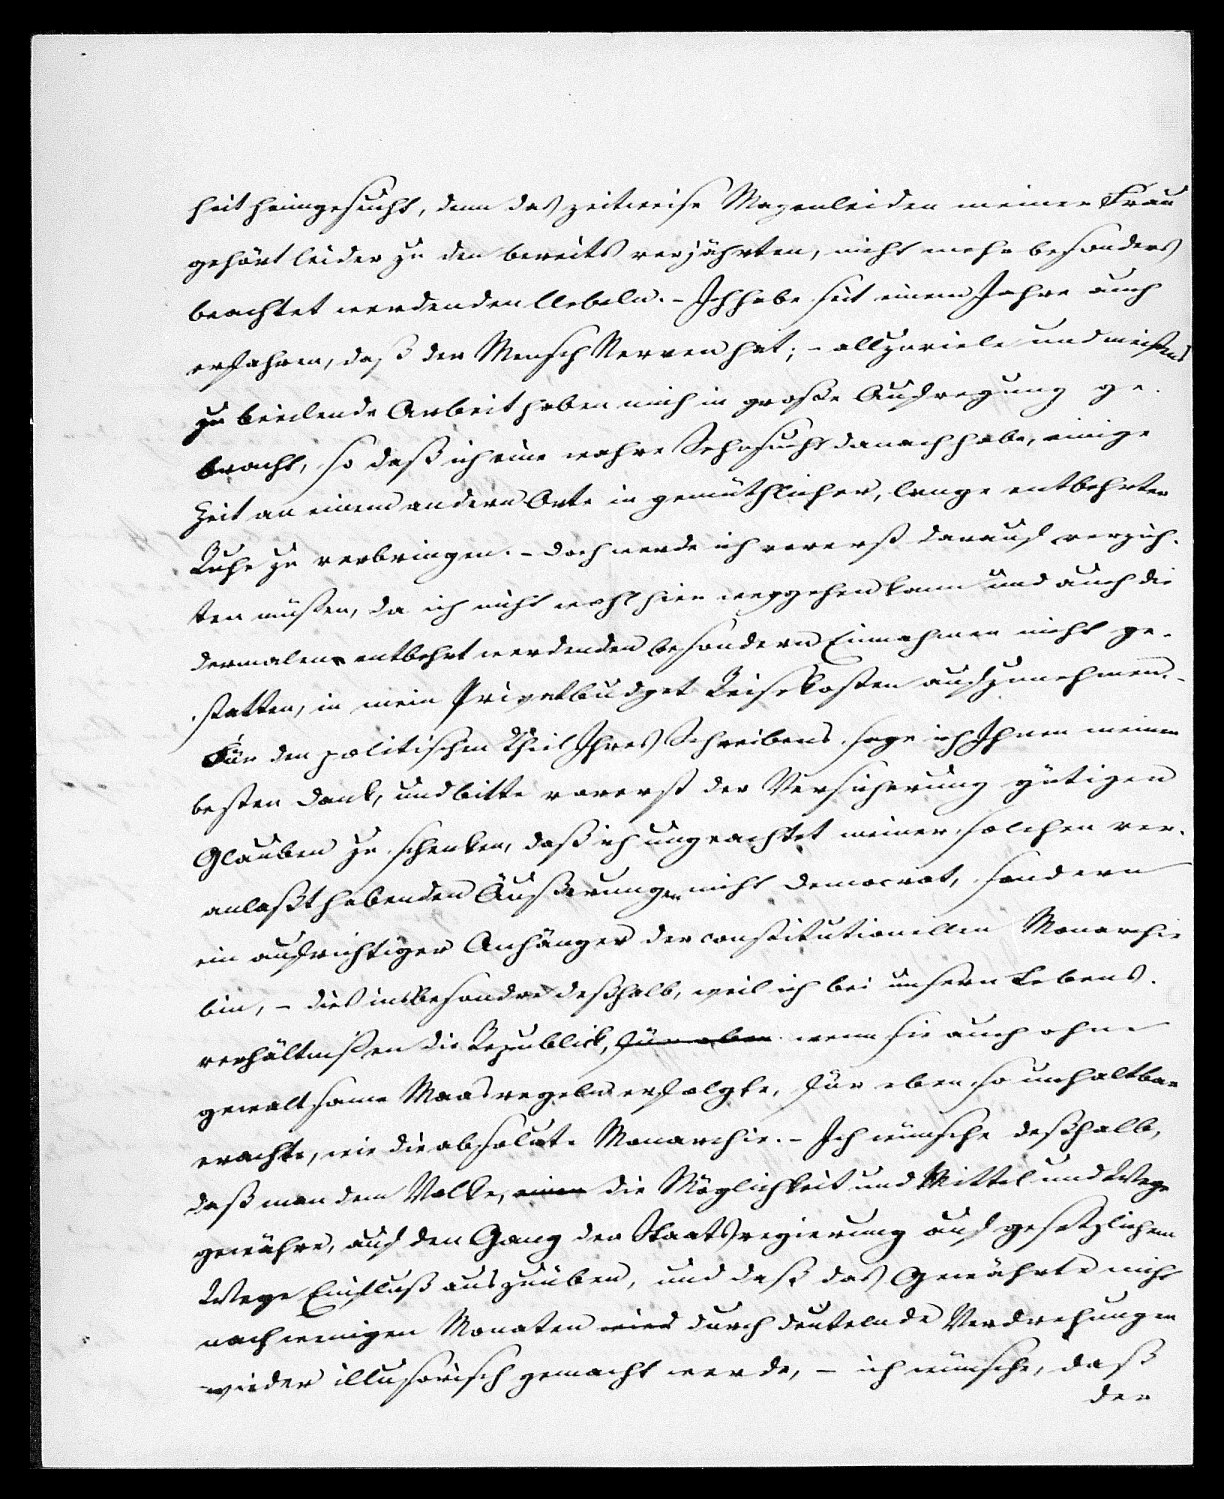 heit heimgesucht, denn das zeitweise Magenleiden meiner Frau
gehört leider zu den bereits verjährten, nicht mehr besonders
beachtet werdenden Uebeln. – Ich habe seit einem Jahre auch
erfahren, daß der Mensch Nerven hat; – allzuviele und meistens
zu beeilende Arbeit haben mich in große Aufregung ge-
bracht, so daß ich eine wahre Sehnsucht danach habe, einige
Zeit an einem andern Orte in gemüthlicher, lange entbehrter
Ruhe zu verbringen. – Doch werde ich vorerst darauf verzich-
ten müßen, da ich nicht wohl hier weggehen kann und auch die
dermalen entbehrt werdenden besondern Einnahmen nicht ge-
statten, in mein Privatbudget Reisekosten aufzunehmen. –
Für den politischen Theil Ihres Schreibens sage ich Ihnen meinen
besten Dank, und bitte vorerst der Versicherung gütigen
Glauben zu schenken, daß ich ungeachtet meiner solchen ver-
anlaßt habenden Äußerungen nicht Democrat, sondern
ein aufrichtiger Anhänger der constitutionellen Monarchie
bin, – dies insbesondre deßhalb, weil ich bei unsern Lebens-
verhältnißen die Republick, für eben wenn sie auch ohne
gewaltsame Maasregeln erfolgte, für eben so unhaltbar
erachte, wie die absolute Monarchie. – Ich wünsche deßhalb,
daß man dem Volke, einen die Möglichkeit und Mittel und Wege
gewähre, auf den Gang der Staatsregierung auf gesetzlichem
Wege Einfluß auszuüben, und daß das Gewährte nicht
nach wenigen Monaten wied durch deutelnde Verdrehungen
wieder illusorisch gemacht werde, – ich wünsche, daß
der